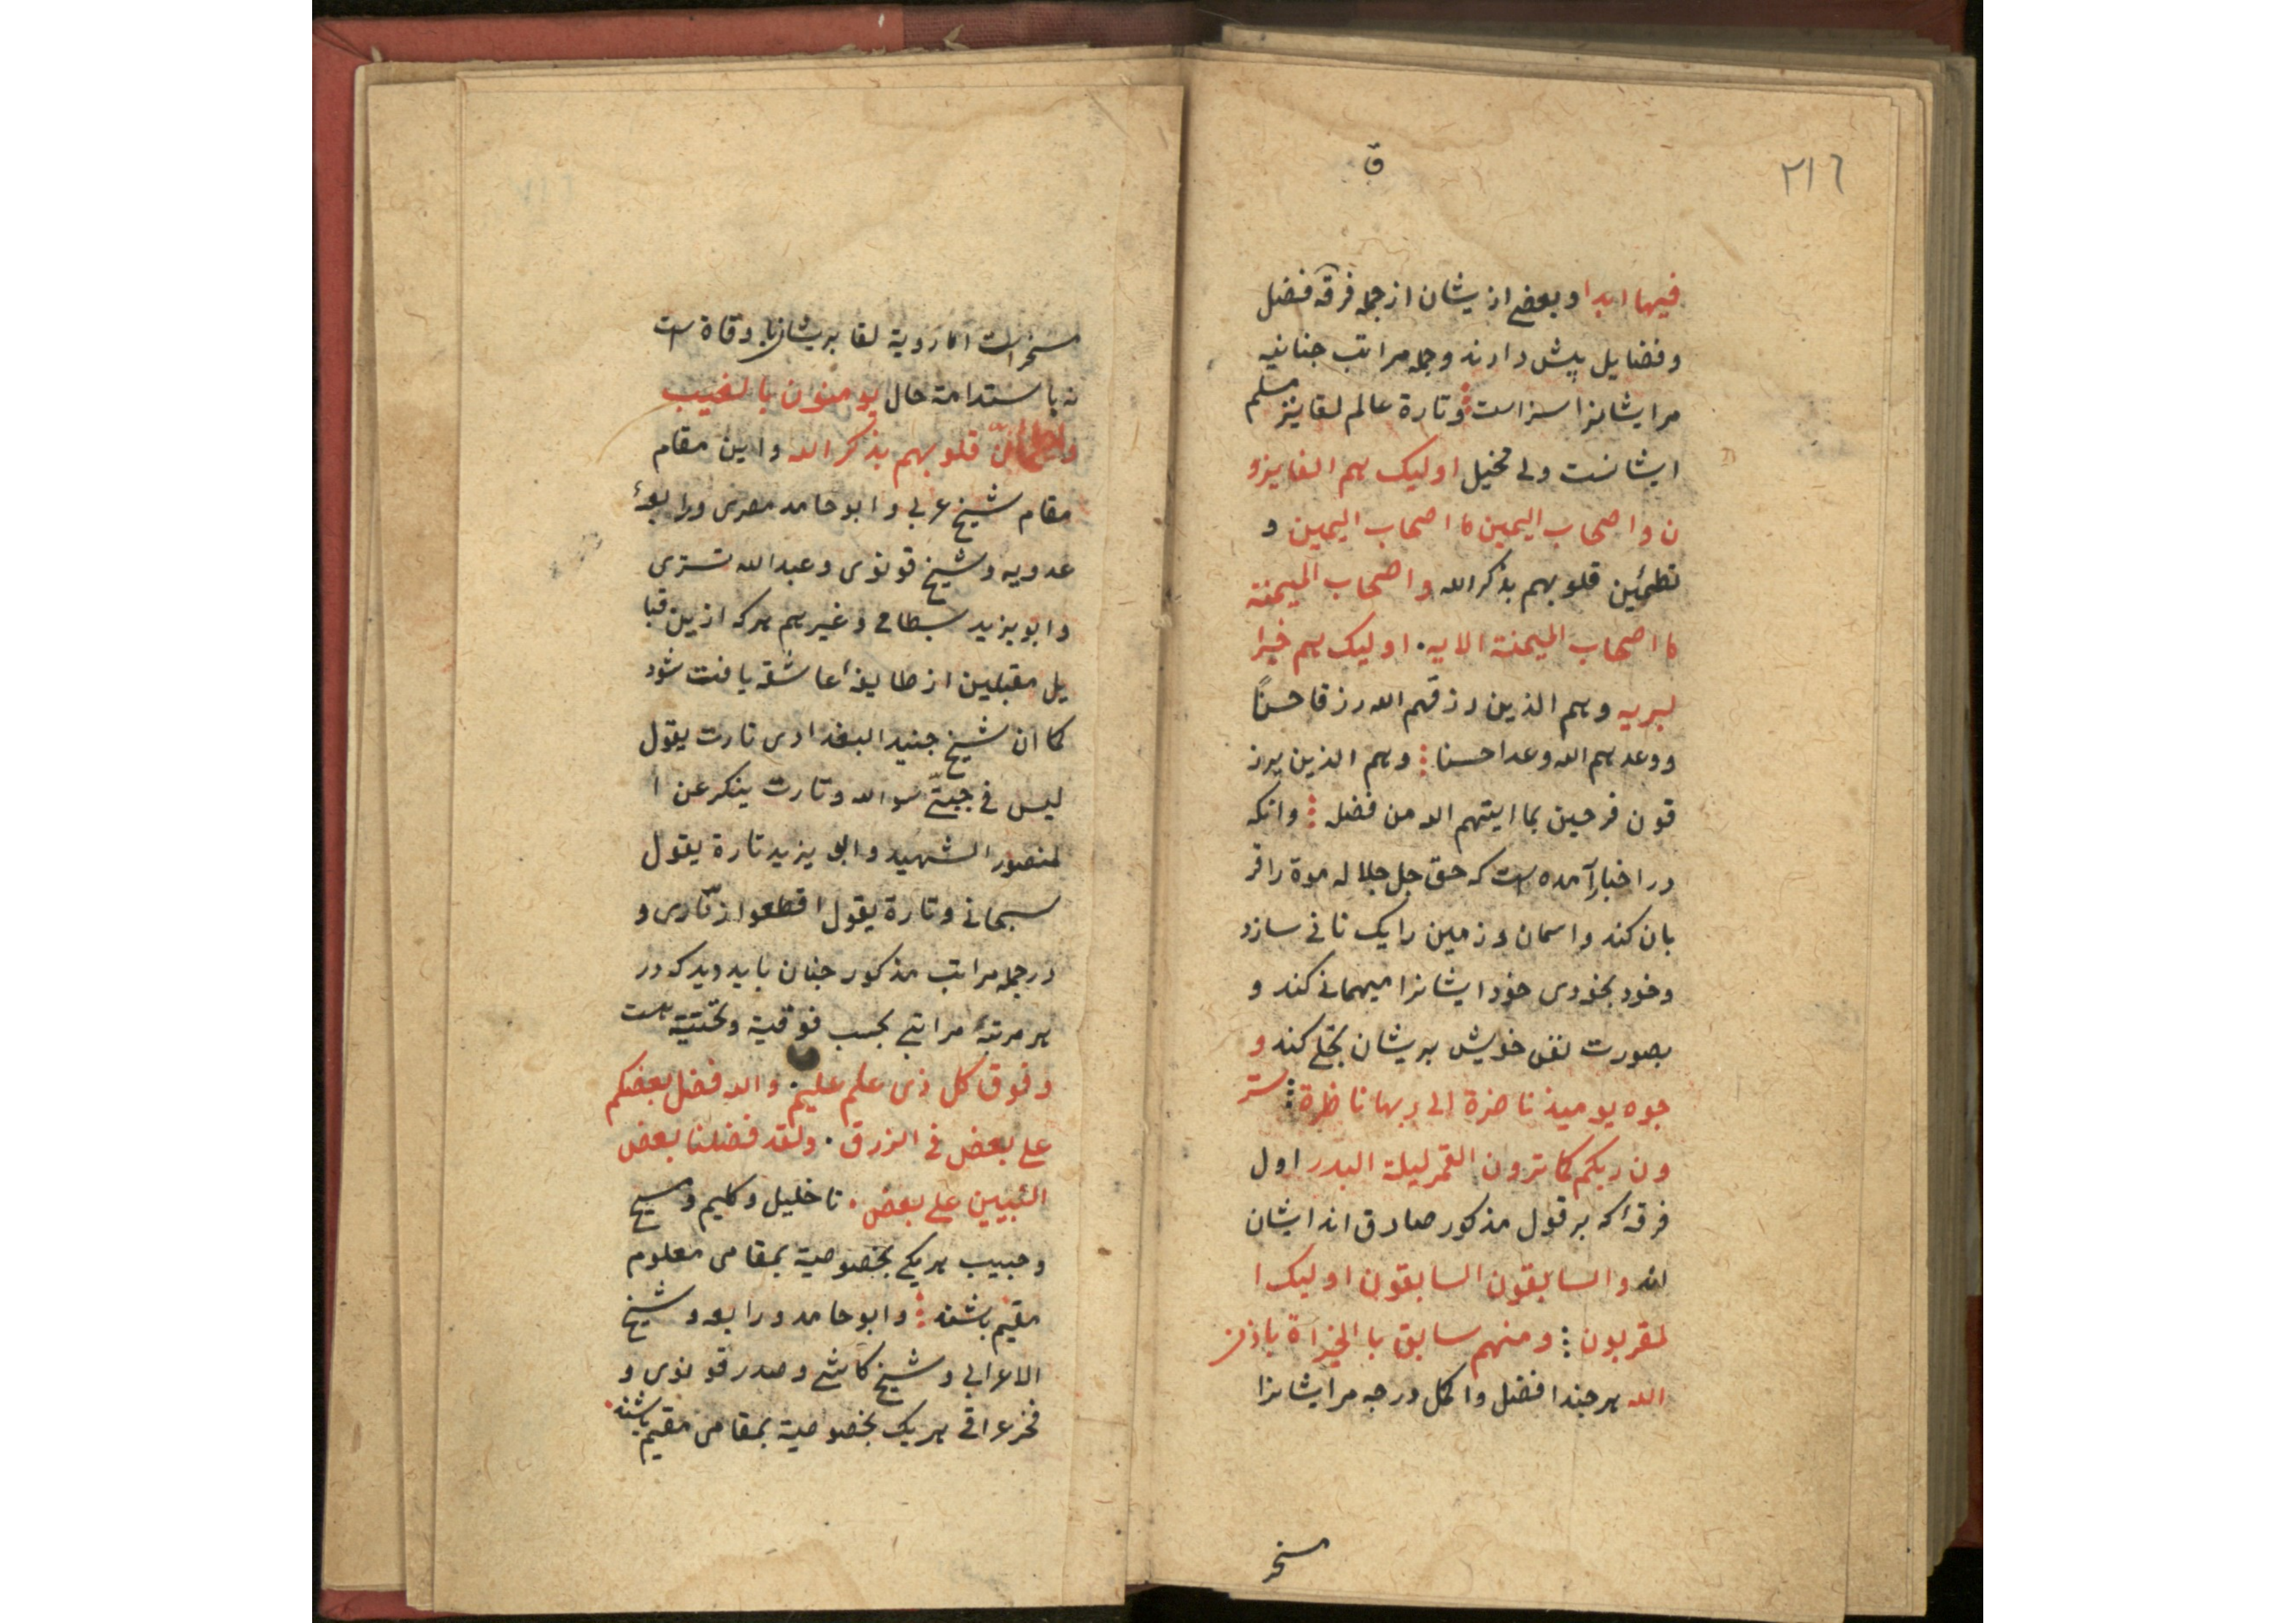 ٢١٦
ق
فیها ابدا وبعضے ازیشان از جمله فرقه فضل
وفضایل پیش دارند وجمله مراتب جنانیه
مرایشانرا سزاست وتارة عالم لقا نیز مسلم
ایشانست ولی مخیل اولیک هم الفایزو
ن واصحاب الیمین ما اصحاب الیمین و
تطمئین قلوبهم بذکر الله واصحاب المیمنة
ما اصحاب المیمنة الایه. اولیک هم خیرا
لبریه وهم الذین رزقهم الله رزقا حسنًا
ووعدهم الله وعدا حسنا وهم الذین یرز
قون فرحین بما ایتهم الله من فضله وانکه
در اخبار آمده است که حق جل جلاله موة را قر
بان کند واسمان وزمین را یک نانی سازد
وخود بخودی خود ایشانرا میهمانی کند و
بصورت نفس خویش بریشان تجلے کند و
جوه یومیذ ناضرة الی ربها ناظرة ستر
ون ربکم کما ترون القمر لیلة البدر اول
فرقۀ که بر قول مذکور صادق اند ایشان
اند والسابقون السابقون اولیک ا
لمقربون ومنهم سابق با الخیراة باذن
الله هرچند افضل واکمل درجه مرایشانرا
مسخر
مسخراست اما رویة لقا بریشان باوقاة است
نه باستدامة حال یومنون بالغیب
قلوبهم بذکر الله واین مقام
مقام شیخ عربی وابو حامد مصری ورابعۀ
عدویه وشیخ قونوی وعبدالله تستری
وابو یزید بسطامی وغیرهم هرکه ازین قبا
یل مقبلین از طایفۀ عاشقه یافت شود
کما ان شیخ جنید البغدادی تارت یقول
لیس فی جبتّی سو الله وتارت ینکر عن ا
لمنصور الشهید وابو یزید تارة یقول
سبحانی وتارة یقول اقطعوا زنّاری و
در جمله مراتب مذکور جنان باید دید که در
هر مرتبۀ مراتبی بحسب فوقیة وتحتیة هست
وفوق کل ذی علم علیم. والله فضل بعضکم
علی بعض فی الرزق. ولقد فضلنا بعض
النبیین علی بعض. تا خلیل وکلیم ومسیح
وحبیب هریکے بخصوصیة بمقامی معلوم
مقیم باشند وابو حامد ورابعه وشیخ
الاعرابی وشیخ کاشی وصدر قونوی و
فخر عراقی هریک بخصوصیة بمقامی مقیم باشند